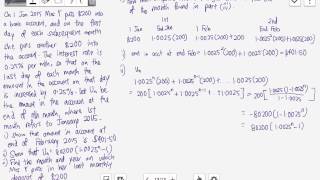 On 1 Jan 2015 Mrs Y puts $200 into
a bank account, and on the first
day of each subsequent month
she puts another $200 into
the account. The interest rate is
0.25% per mth, so that on the
last day of each month the
amount in the account on that
day is increased by 0.25%. Let Un be
the amount in the account at the
end of nth month, where 1st
month refers to January 2015.
i) Show that amount in account at
end of February 2015 is $401.50
ii) Show that Un = 80200(1.0025^n-1)
iii) Find the month and year on which
Mrs Y put in her last monthly
deposit of $200
of the month found in part (iii)
1st 2nd
End Jan End Feb
1.0025(200) 1.0025²(200)+1.0025(200)
i) amt in acct at end Feb = 1.0025²(200)+1.0025(200) = $401.50
ii) Un
= 1.0025^n(200)+1.0025^n-1(200)+ ... 1.0025(200)
= 200[1.0025^n+1.0025^n-1+ ... 1.0025] = 200[1.0025(1-1.0025^n)/1-1.0025]
= -80200(1-1.0025^n)
= 80200(1.0025^n-1)